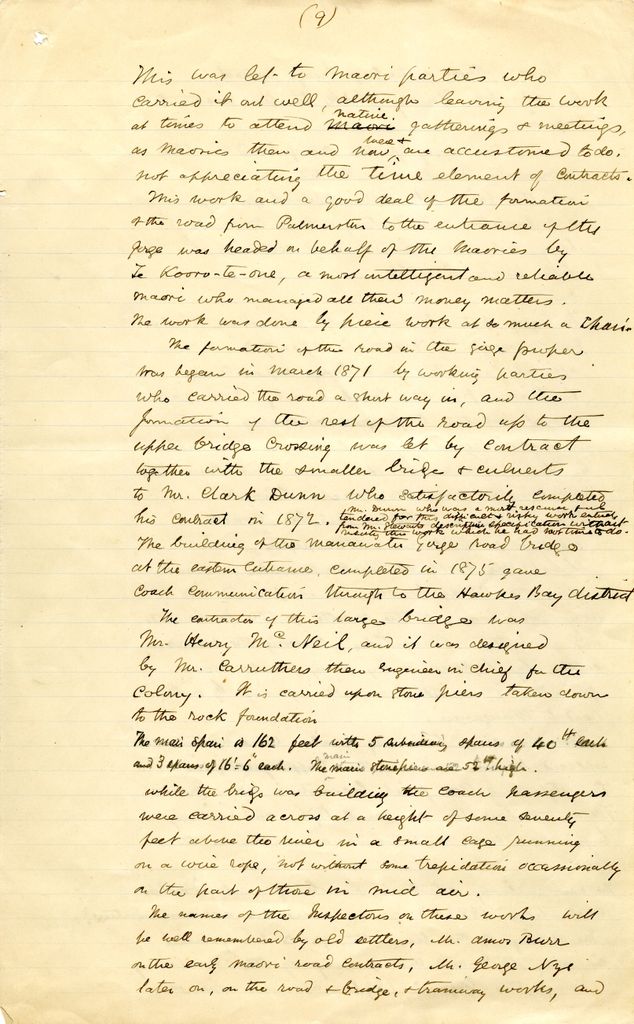 (9)
This was let to Maori parties who
carried it out well, although leaving the work
at times to attend Maori native gatherings & meetings,
as Maories then and now were & are accustomed to do.
not appreciating the time element of contracts.
This work and a good deal of the formation
of the road from Palmerston to the entrance of the
gorge was headed on behalf of the Maories by
Te Kooro-te-one, a most intelligent and reliable
Maori who managed all their money matters.
The work was done by piece work at so much a Chain
The formation of the road in the gorge proper
was began in March 1871 by working parties
who carried the road a short way in, and the
formation of the rest of the road up to the
upper bridge crossing was let by contract
together with the smaller bridge & culverts
to Mr. Clark Dunn who satisfactorily completed
his contract in 1872. Mr. Dunn who was a most
tendered for this difficult & risky work
from Mr. Stewarts descriptive specification without
the work which he had not time to do.
The building of the Manawatu Gorge road bridge
at the eastern entrance, completed in 1875 gave
coach communication through to the Hawkes Bay district
The contractor of this large bridge was
Mr. Henry McNeil, and it was designed
by Mr. Carruthers then Engineer in Chief for the
Colony. It is carried upon stone piers taken down
to the rock foundation
The main span is 162 feet with 5 subsidiary spans of 40 ft each
and 3 spans of 16'-6" each. The main stone piers are high.
while the bridge was building the coach passengers
were carried across at a height of some seventy
feet above the river in a small cage running
on a wire rope, not without some trepidation occassionally
on the part of those in mid air.
The names of the Inspectors on these works will
be well remembered by old settlers, Mr. Amos Burr
on the early Maori road contracts, Mr. George Nye
later on, on the road & bridge, & tramway works, and